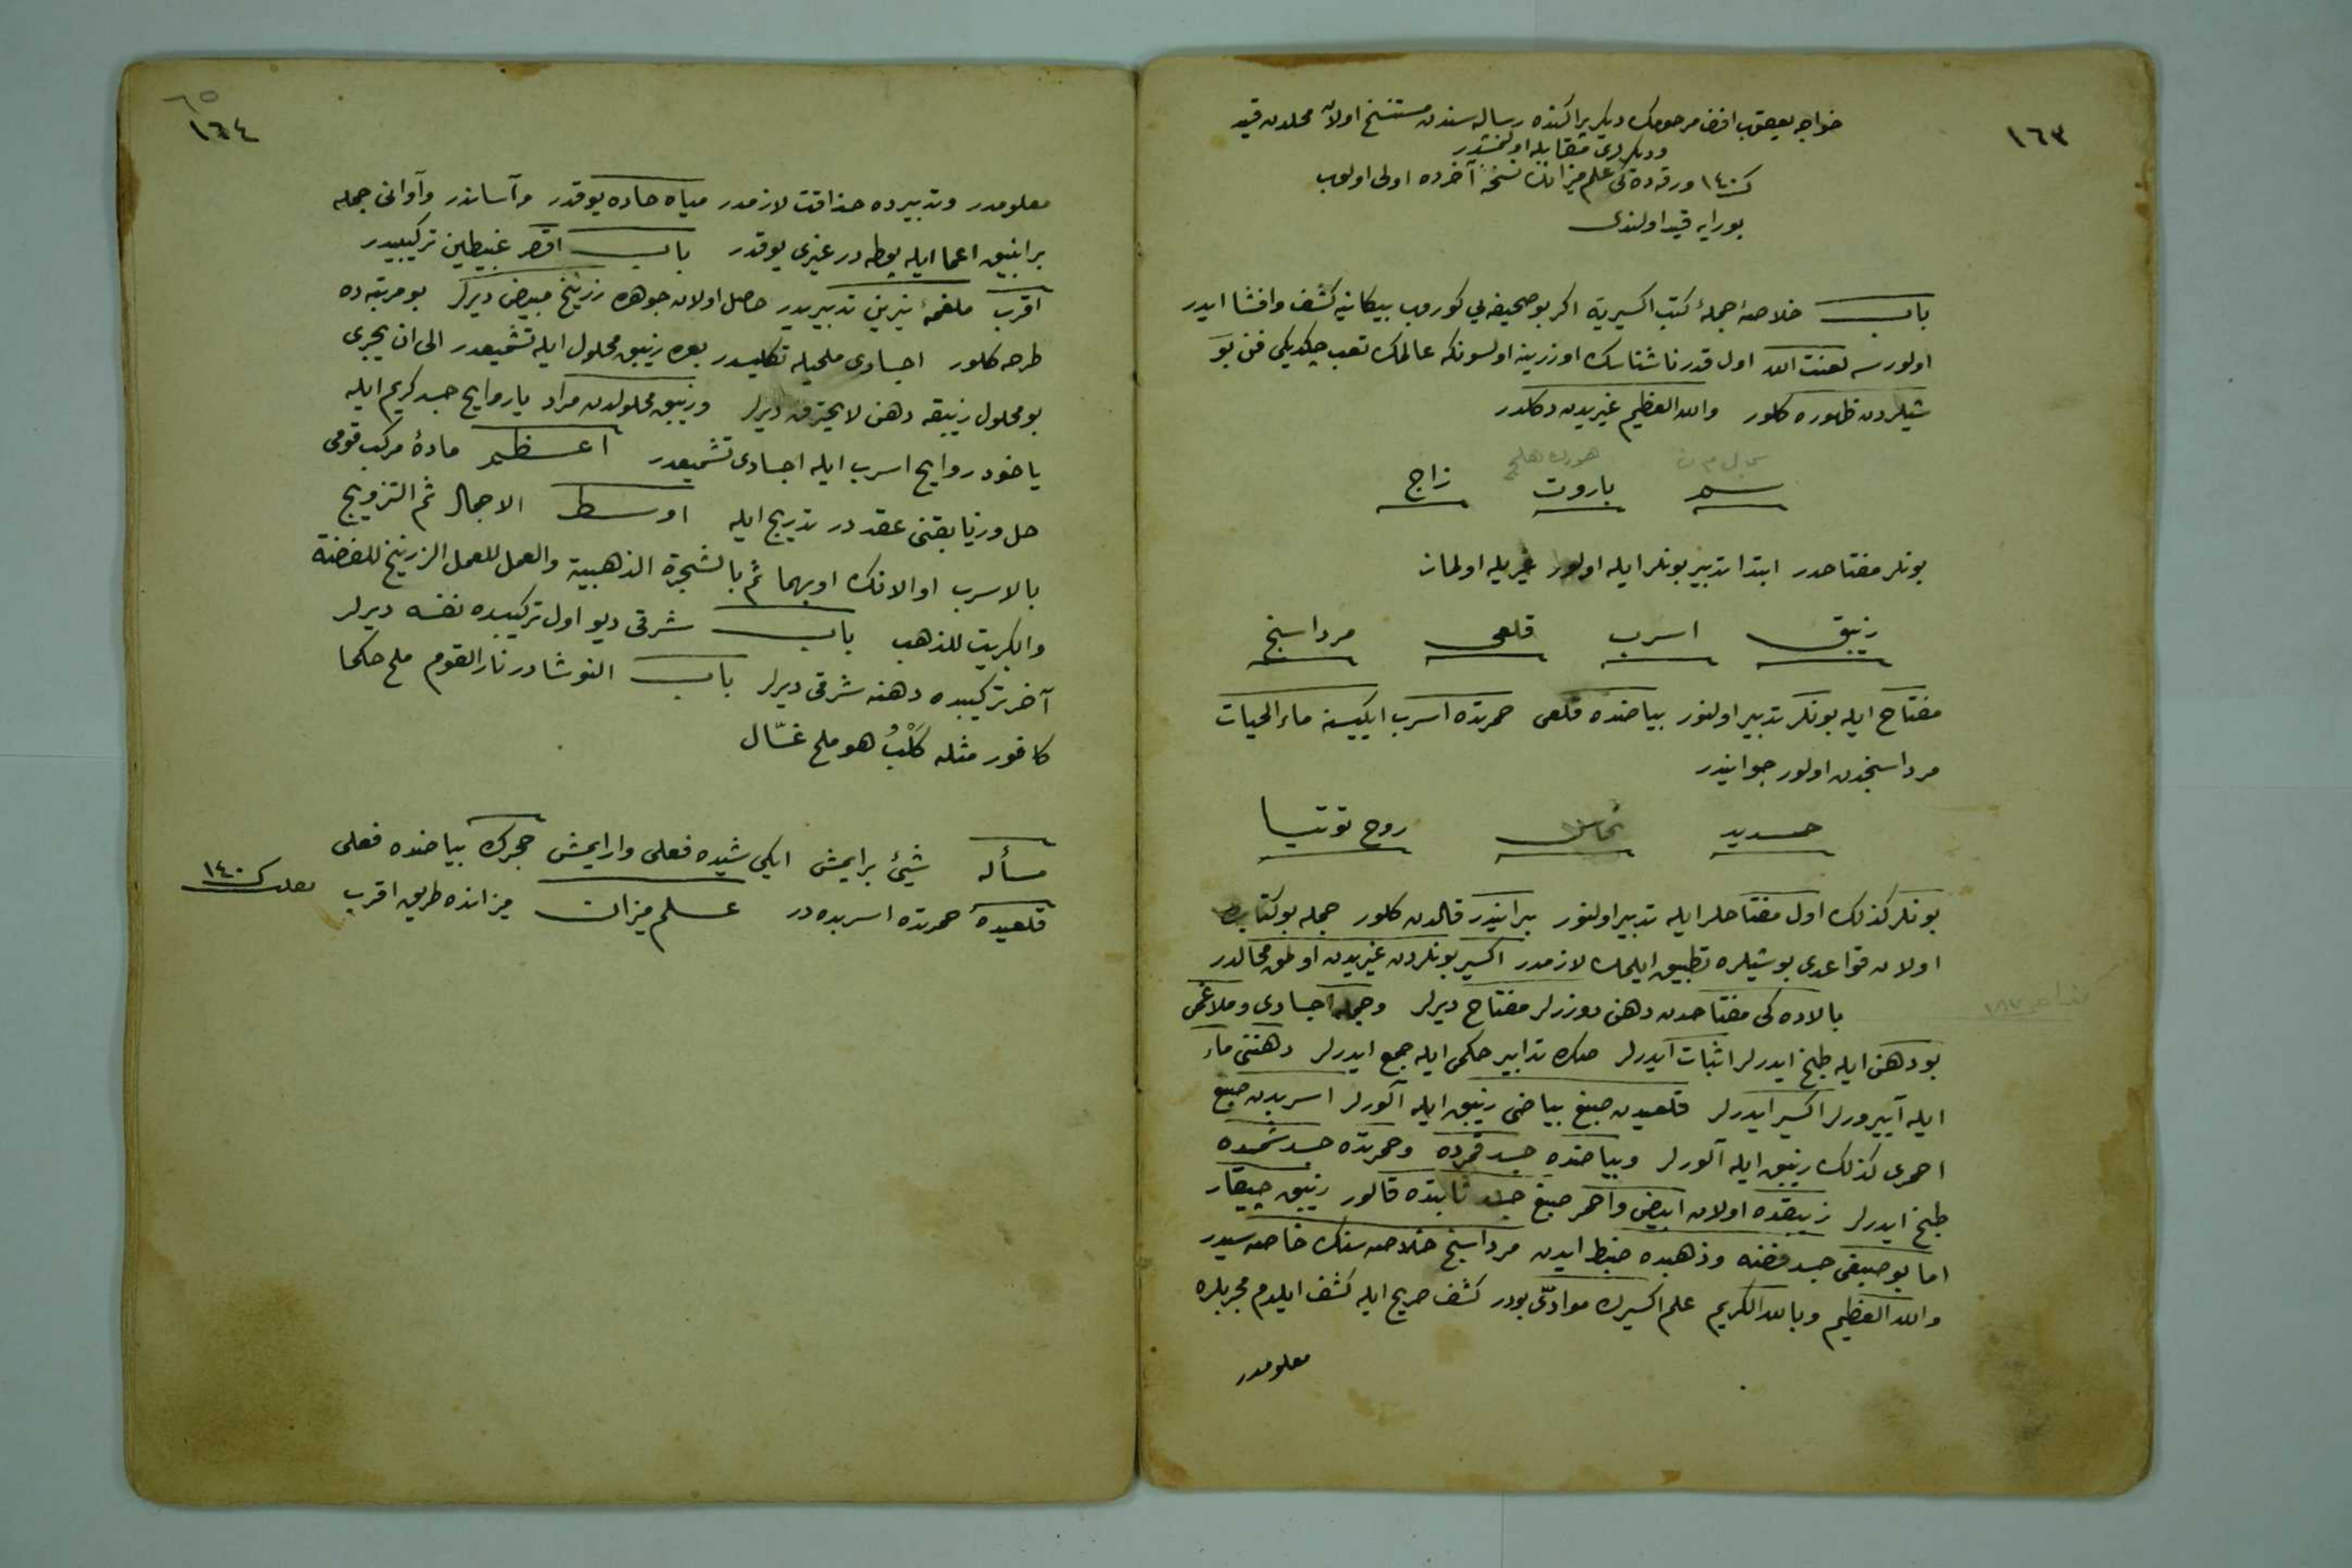 ١٦٣
خواجه يعقوب افندى مرحومك ديكر پراكنده رساله سندن مستنسخ اولان محلدن قيد
وديكرى مقابله اولنمشدر
ك ١٤٠ ورقه ده كى علم ميزانك نسخهٔ آخرده اولى اولوب
بورايه قيد اولندى
باب خلاصهٔ جملهٔ كتب اكسيريه اكر بو صحيفه يى كوروب بيكانيه كشف وافشا ايدر
اولورسه لعنت الله اول قدر ناشناسك اوزرينه اولسونكه عالمك تعب چكديكى فن بو
شيلردن ظهوره كلور والله العظيم غيريدن دكلدر
سم باروت زاج
بونلر مفتاحدر ابتدا تدبير بونلر ايله اولور غيريله اولماز
زيبق اسرب قلعى مرداسنج
مفتاح ايله بونلر تدبير اولنور بياضنده قلعى حمرتده اسرب ايكيسنه ماء الحيات
مرداسنجدن اولور جوانيدر
حديد نحاس روح توتيا
بونلر كذلك اول مفتاحلر ايله تدبير اولنور برانيدر قالدن كلور جمله بو كتابده
اولان قواعدى بو شيلره تطبيق ايلمك لازمدر اكسير بونلردن غيريدن اولمق محالدر
بالاده كى مفتاحدن دهن دوزرلر مفتاح ديرلر وجمله اجسادى وملاغمى
بو دهن ايله طبخ ايدرلر اثبات ايدرلر صكره تدابير حكمى ايله جمع ايدرلر دهننى ماء
ايله آييرورلر اكسير ايدرلر قلعيدن صبغ بياضى زيبق ايله آلورلر اسربدن صبغ
احمرى كذلك زيبق ايله آلورلر وبياضنده جسد قمرده وحمرتده جسد شمسده
طبخ ايدرلر زيبقده اولان ابيض واحمر صبغ جسد ثابتده قالور زيبق چيقار
اما بو صبغى جسد فضه وذهبده ضبط ايدن مرداسنج خلاصه سنك خاصه سيدر
والله العظيم وبالله الكريم علم اكسيرك موادى بودر كشف صريح ايله كشف ايلدم مجربلره
معلومدر
٦٥
١٦٤
معلومدر وتدبيرده حذاقت لازمدر مياه حاده يوقدر وآساندر وآوانى جمله
بر انبيق اعما ايله پوطه در غيرى يوقدر باب اقصر غبيطين تركيبيدر
اقرب ملغمهٔ نيرين تدبيريدر حاصل اولان جوهره زرنيخ مبيض ديرلر بو مرتبه ده
طرحه كلور اجسادى ملحيله تكليسدر بعده زيبق محلول ايله تشميعدر الى ان يجرى
بو محلول زيبقه دهن لا يحترق ديرلر وزيبق محلولدن مراد يا روايح جسد كريم ايله
ياخود روايح اسرب ايله اجسادى تشميعدر اعظم مادهٔ مركب قومى
حل وزيابقنى عقددر تدريج ايله اوسط الاجمال ثم التزويج
بالاسرب او الانك او بهما ثم بالشجرة الذهبية والعمل للعمل الزرنيخ للفضة
والكبريت للذهب باب شرقى ديو اول تركيبده نفسه ديرلر
آخر تركيبده دهنه شرقى ديرلر باب النوشادر نار القوم ملح حكما
كافور مثله كَلْبُ هو ملح غسّال
مسأله شيئ بر ايمش ايكى شيده فعلى وار ايمش حجرك بياضنده فعلى
قلعيده حمرتده اسربده در علم ميزان ميزانده طريق اقرب ك ١٤٠